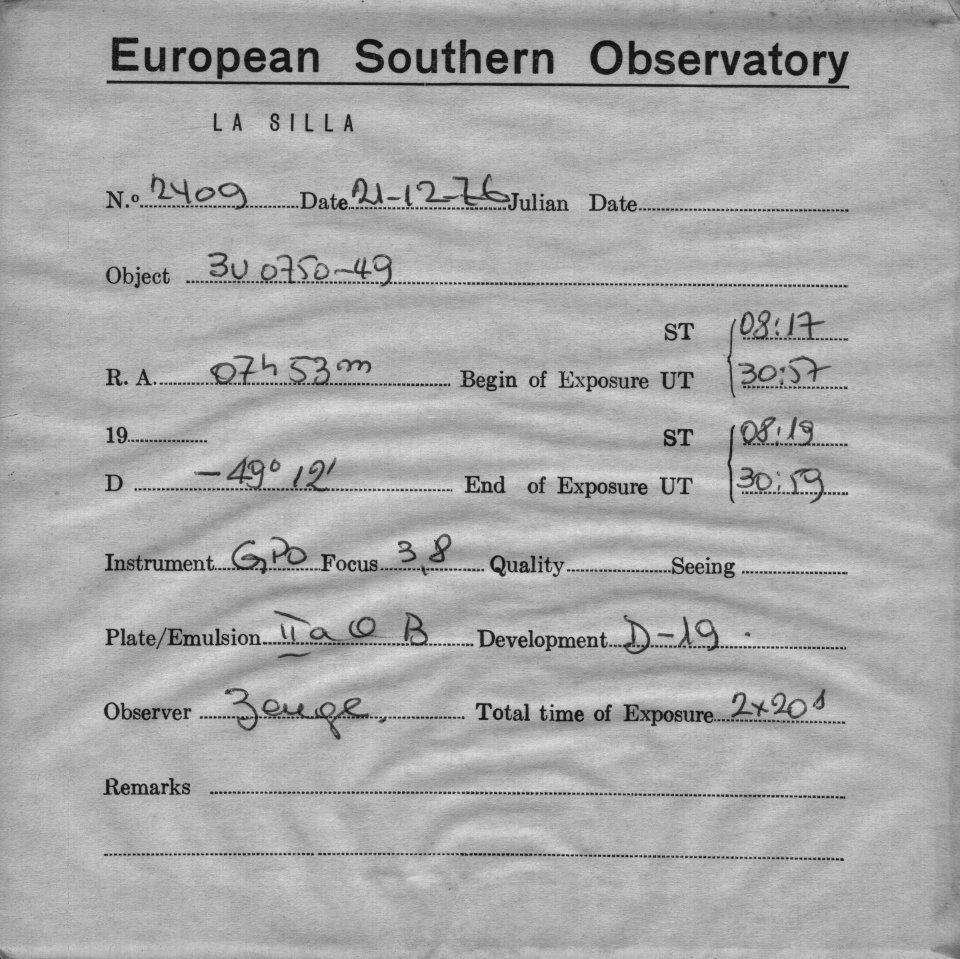 European Southern Observatory
LA SILLA
N.º 2409 Date 21-12-76 Julian Date
Object 3U 0750-49
ST 08:17
R. A. 07h 53m Begin of Exposure UT 30:57
19 ST 08:19
D -49° 12' End of Exposure UT 30:59
Instrument GPO Focus 3,8 Quality Seeing
Plate/Emulsion IIa O B Development D-19.
Observer Total time of Exposure 2x20s
Remarks